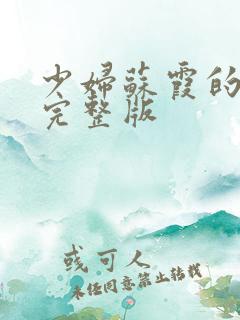 少婦蘇霞的
完整版
或可人
未经同意禁止转载